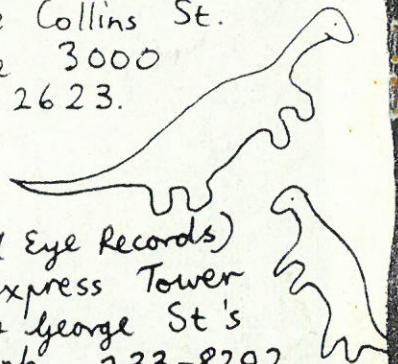 Collins St.
3000
2623.
Eye Records)
xpress Tower
George St's
233-8292